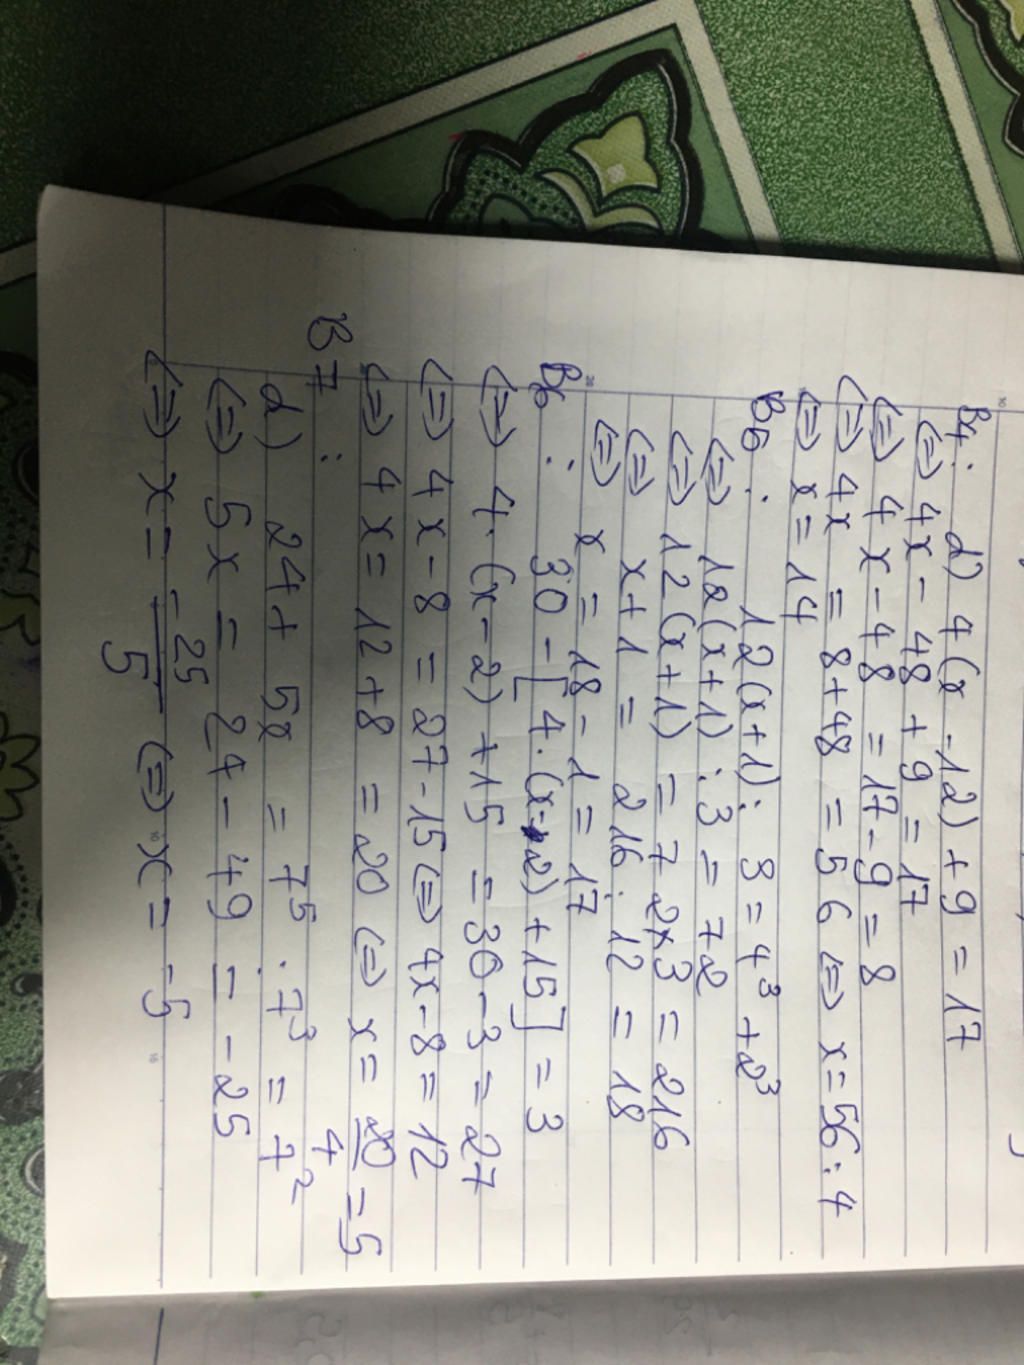 B4: d) 4(x-12)+9=17
<=> 4x-48+9=17
<=> 4x-48=17-9=8
<=> 4x=8+48=56 <=> x=56:4
<=> x=14
B5: 12(x+1):3=4³+2³
<=> 12(x+1):3=72
<=> 12(x+1)=72×3=216
<=> x+1=216:12=18
<=> x=18-1=17
B6: 30-[4.(x-2)+15]=3
<=> 4.(x-2)+15=30-3=27
<=> 4x-8=27-15 <=> 4x-8=12
<=> 4x=12+8=20 <=> x=20/4=5
B7:
d) 24+5x=7⁵:7³=7²
<=> 5x=24-49=-25
<=> x=-25/5 <=> x=-5